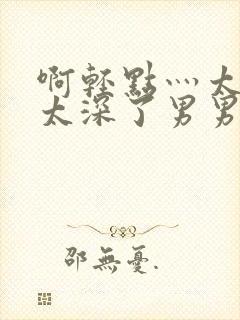 啊轻點灬太
太深了男男
邵無憂.